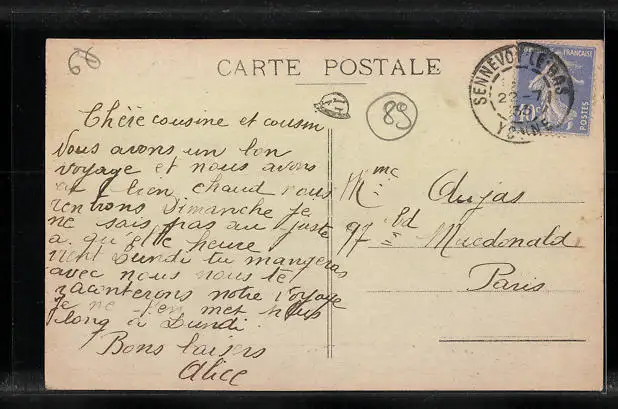 60
CARTE POSTALE
89
SENNEVOY-LE-BAS
22-7
YONNE
FRANÇAISE
40c
POSTES
Chère cousine et cousin
Nous avons un bon
voyage et nous avons
et bien chaud nous
rentrons Dimanche je
ne sais pas au juste
a qu elle heure
vient Lundi tu mangeras
avec nous nous te
raconterons notre voyage
Je ne t'en met plus
long à Lundi
Bons baisers
Alice
Mme Aujas
97 Bd Macdonald
Paris